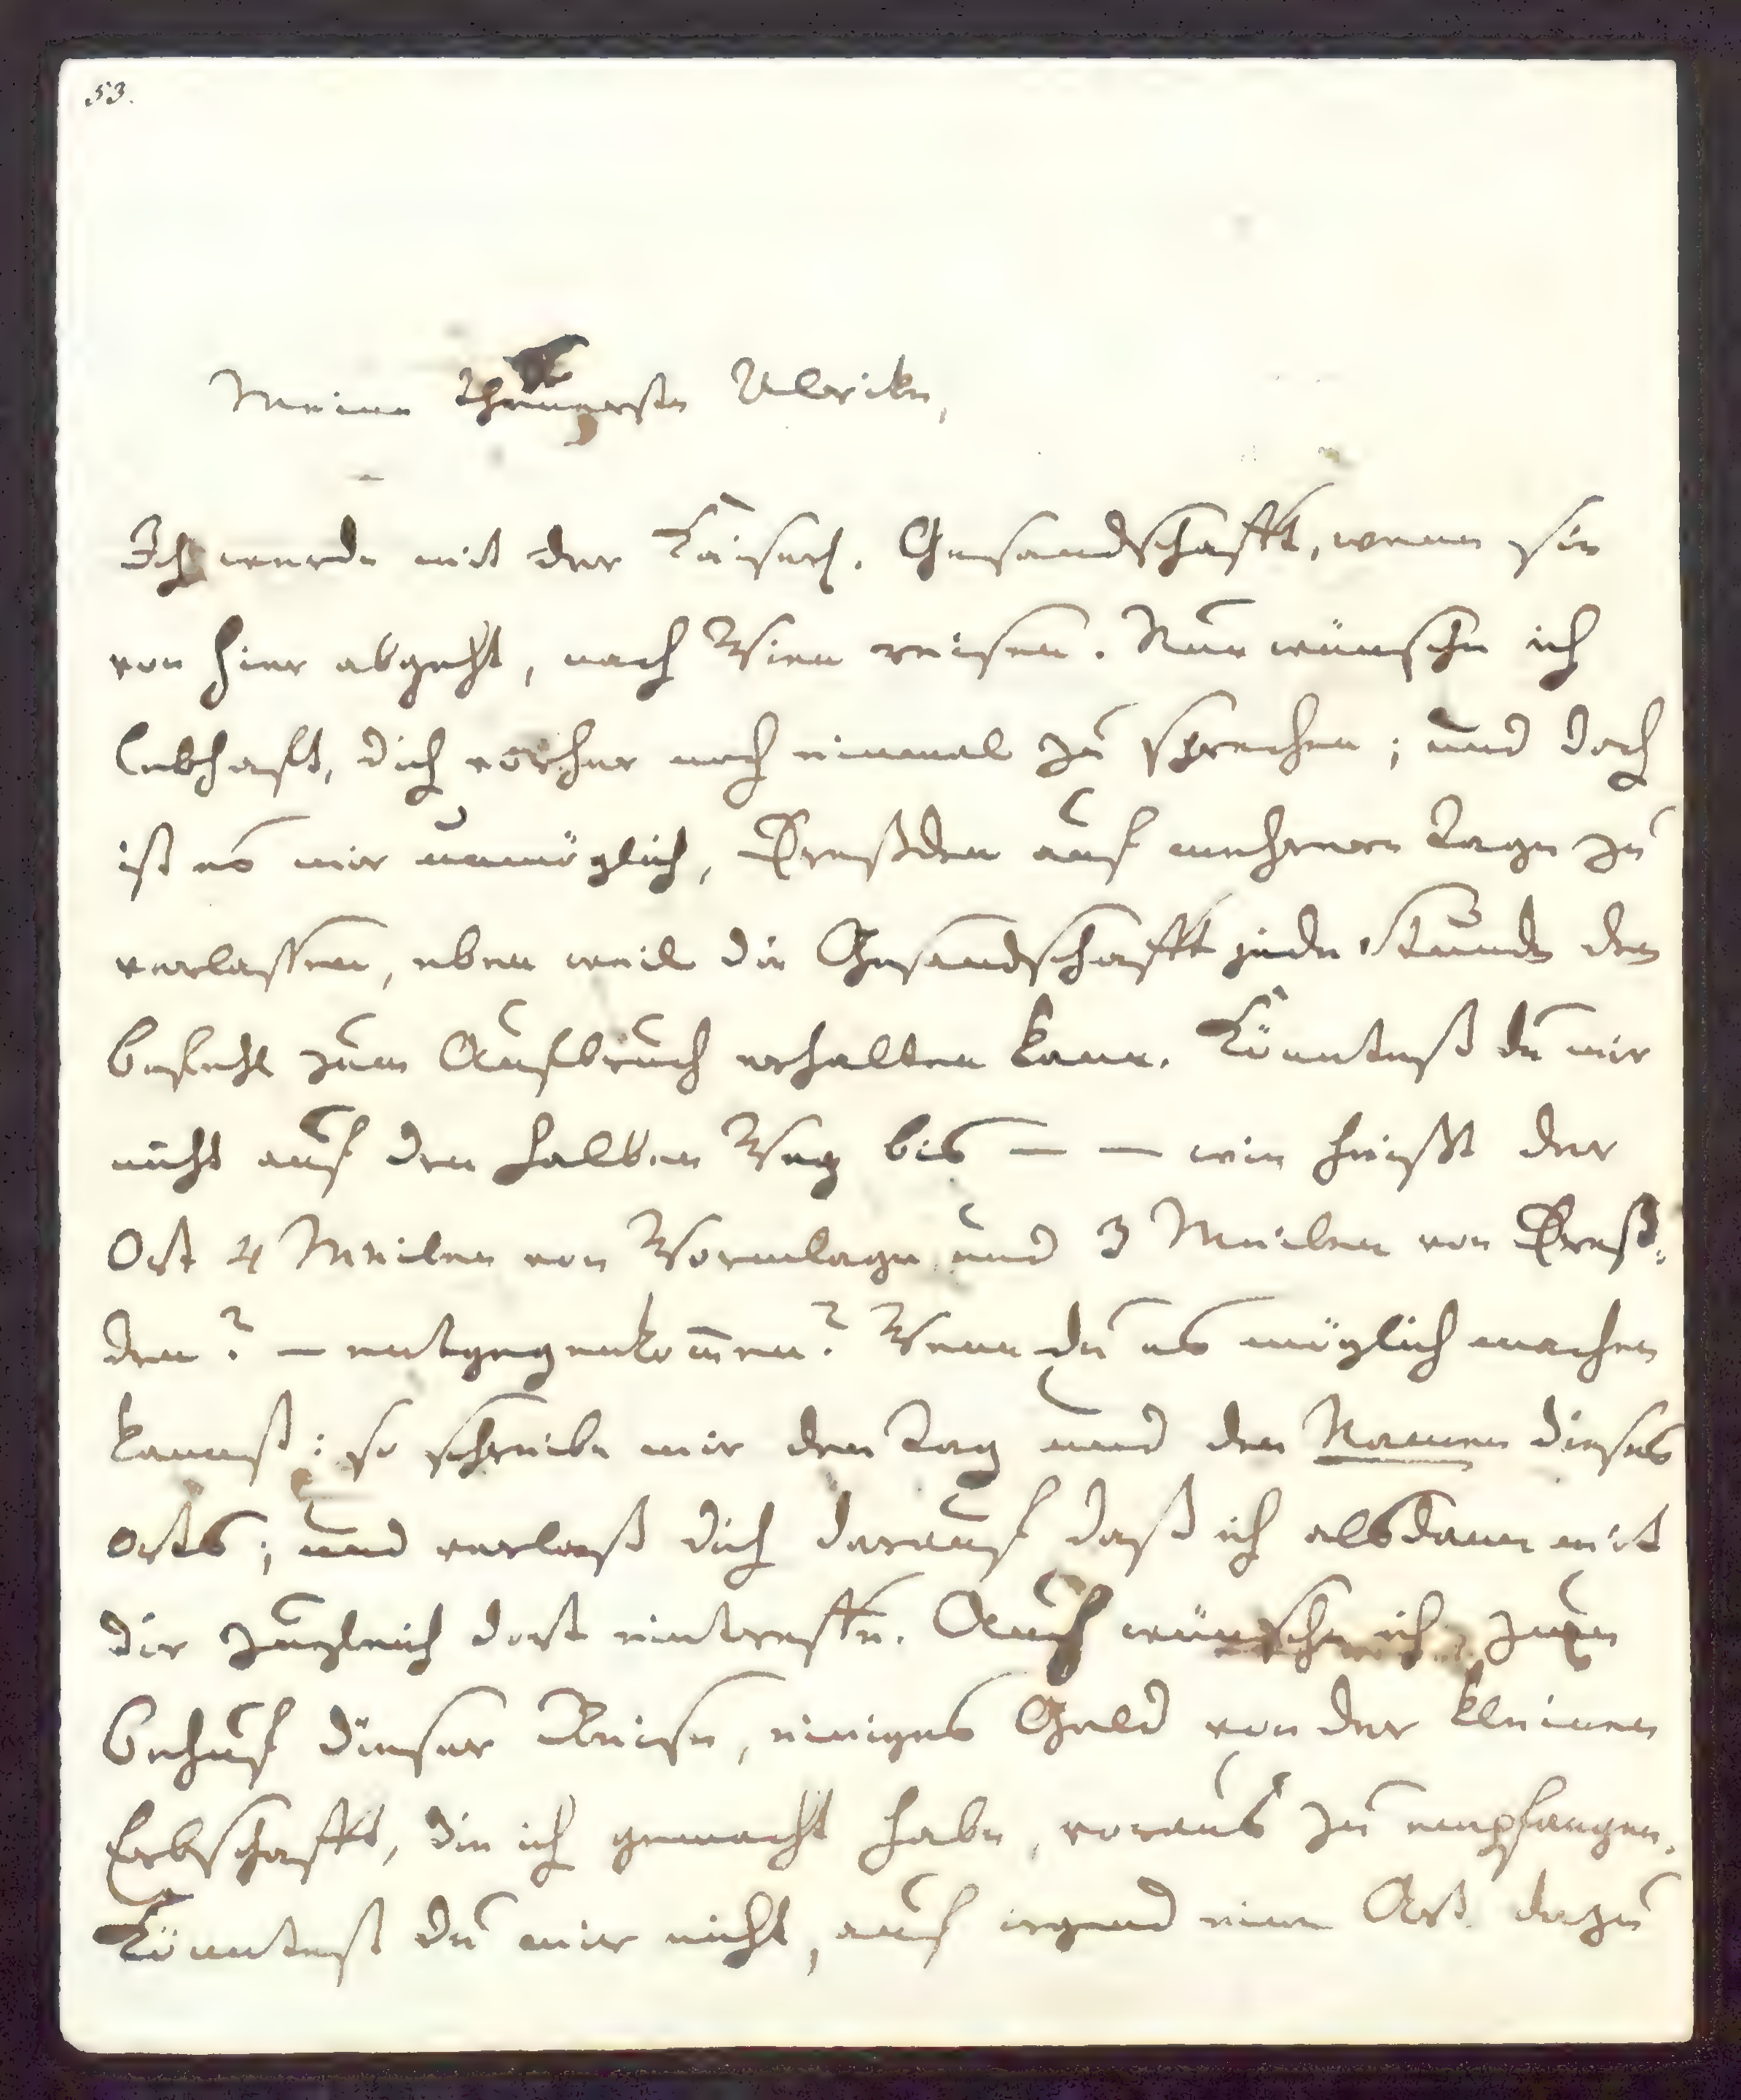 53.
Meine theuerste Ulrike,
Ich werde mit der Kaiserl. Gesandschafft, wenn sie
von hier abgeht, nach Wien reisen. Nun wünsche ich
lebhaft, dich vorher noch einmal zu sprechen; und doch
ist es mir unmöglich, Dreßden auf mehrere Tage zu
verlassen, eben weil die Gesandschafft jede Stunde den
Befehl zum Aufbruch erhalten kann. Könntest du mir
nicht auf den halben Weg bis — — wie heißt der
Ort 4 Meilen von Wormlage und 3 Meilen von Dreß-
den? — entgegenkom̅en? Wenn du es möglich machen
kannst: so schreibe mir den Tag und den Namen dieses
Orts; und verlaß dich darauf daß ich alsdann mit
dir zugleich dort eintreffe. Auch wünsche ich, zum
Behuf dieser Reise, einiges Geld von der kleinen
Erbschafft, die ich gemacht habe, voraus zu empfangen.
Könntest du mir nicht, auf irgend eine Art dazu